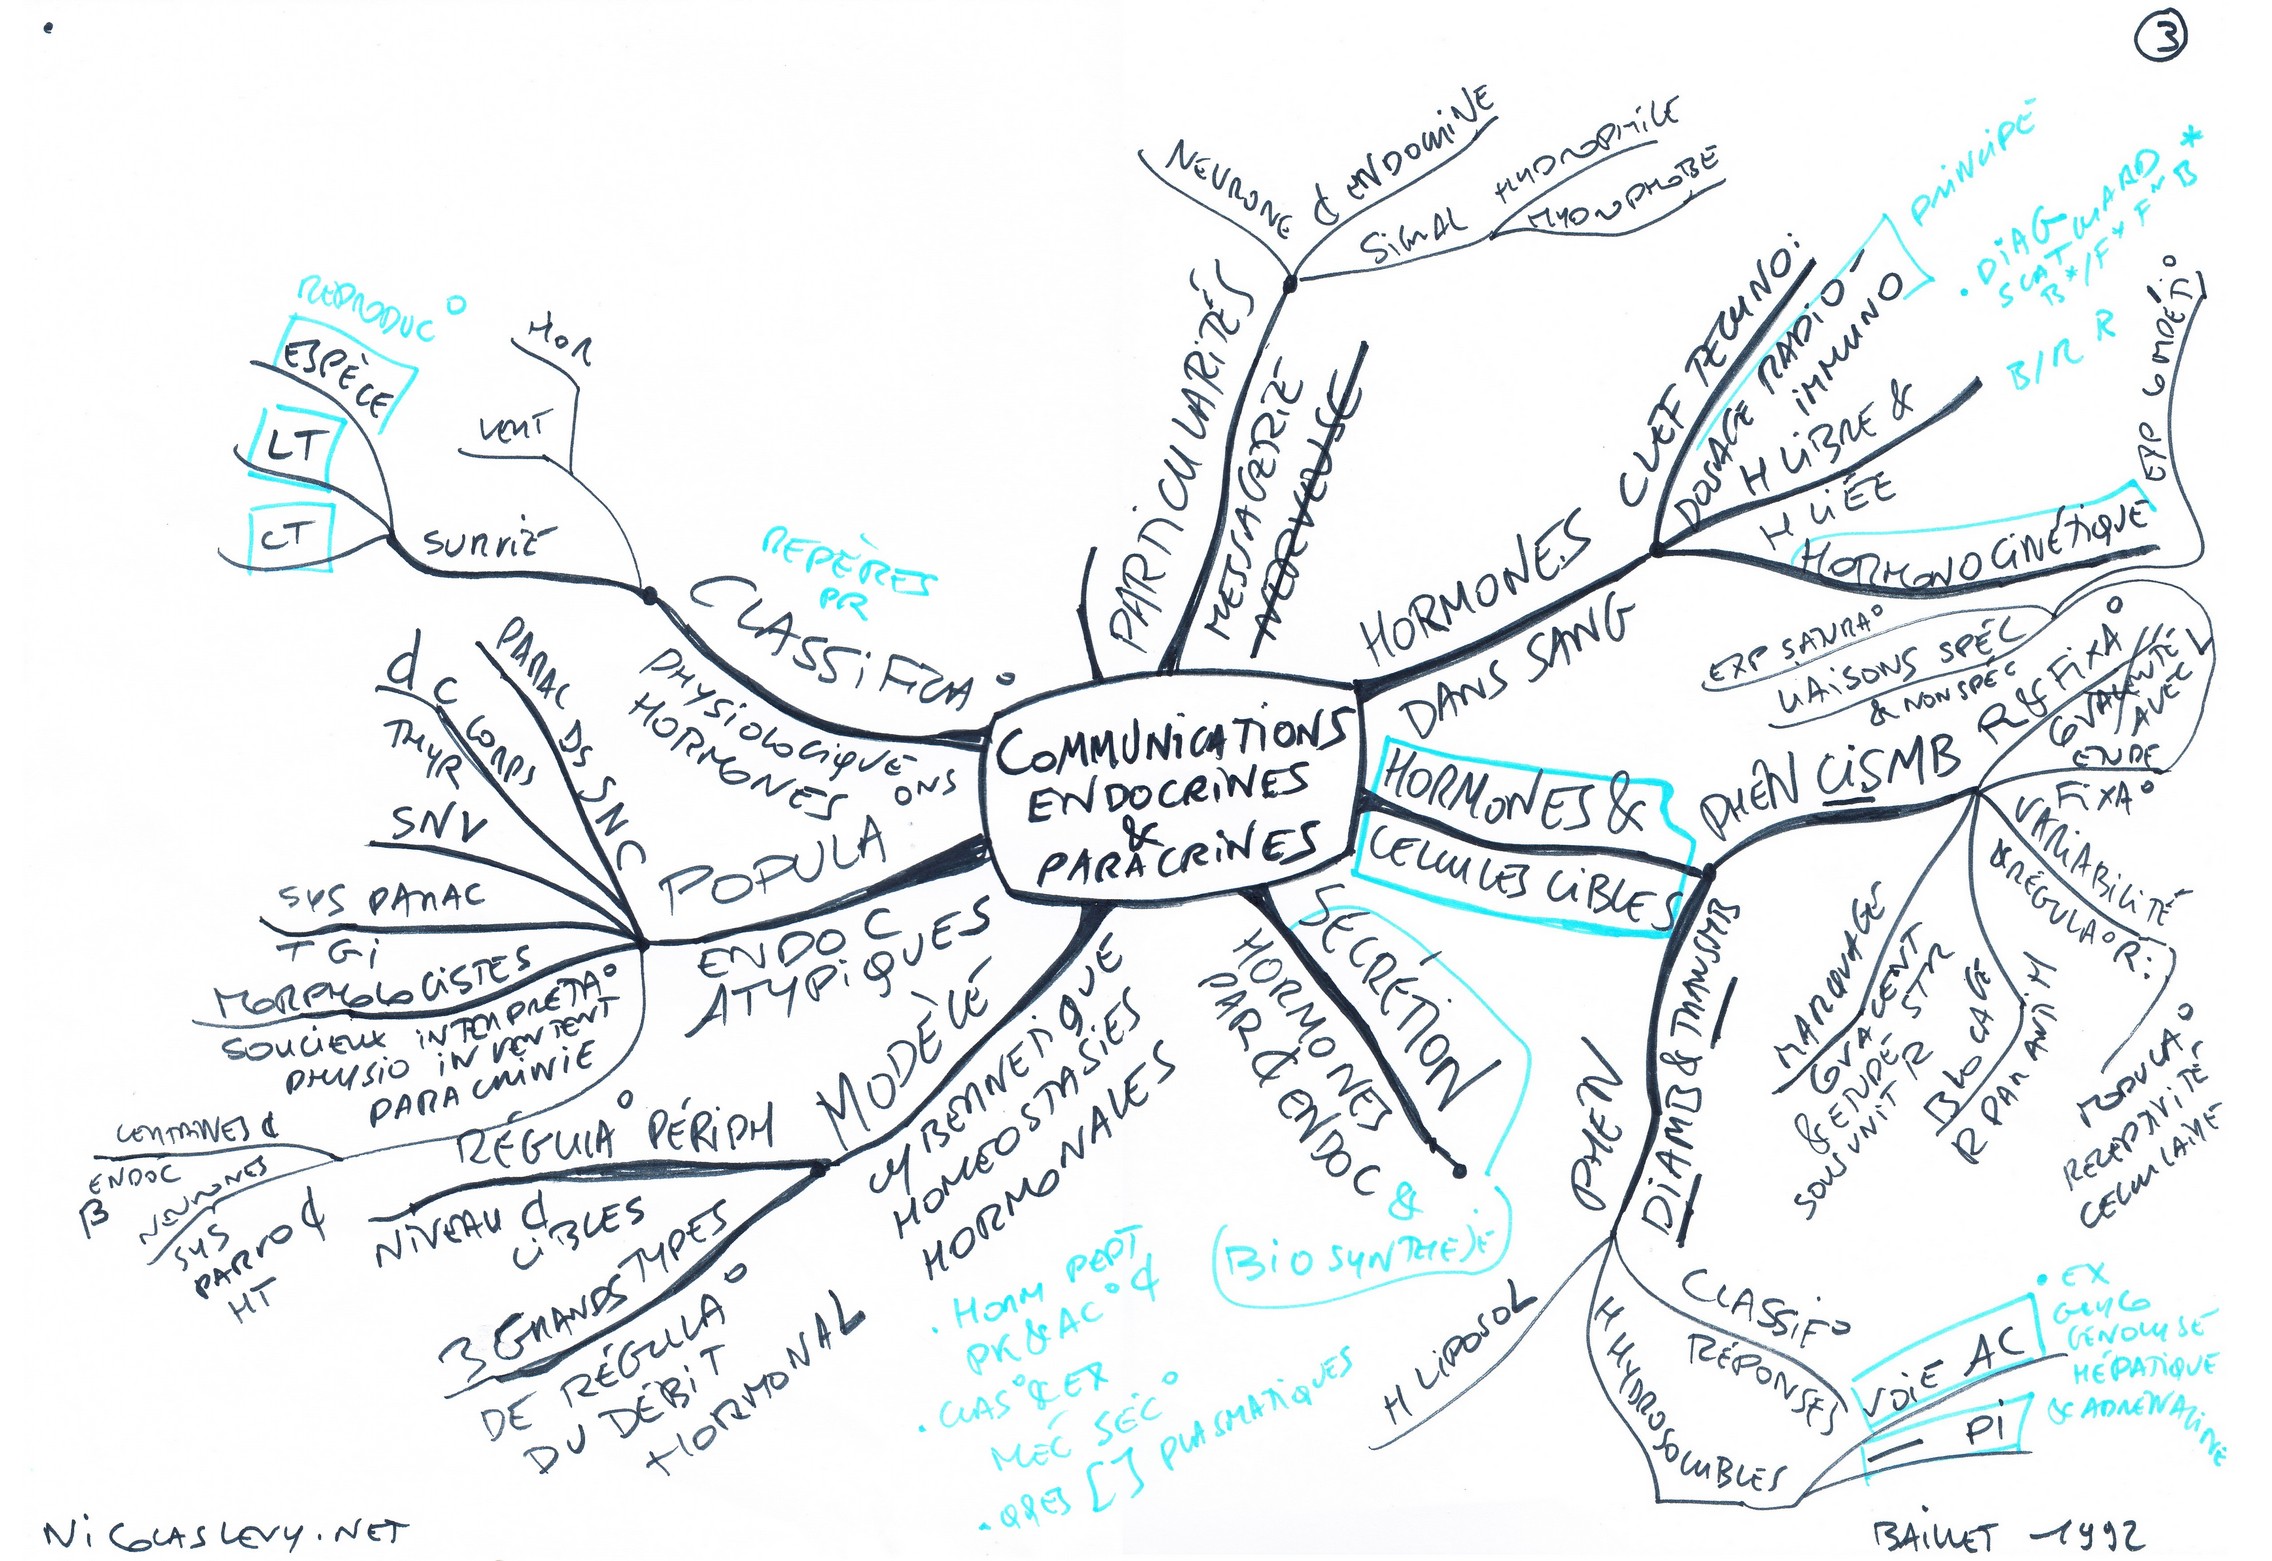 3
NEURONE
¢ ENDOCRINE
SIGNAL
HYDROPHILE
HYDROPHOBE
PARTICULARITÉS
MESSAGERIE
NERVEUSE
HORMONES
DANS SANG
CLEF TECHNO:
DOSAGE RADIO-
IMMUNO
PRINCIPE
. DIAG
SCATCHARD
B*/F*
B/R R
H LIBRE &
H LIÉE
HORMONOCINÉTIQUE
EXP COMPÉTI°
EXP SATURA°
LIAISONS SPÉC
& NON SPÉC
HORMONES &
CELLULES CIBLES
PHEN CISMB
R & FIXA°
FIXA°
VARIABILITÉ
& RÉGULA° R:
MODULA°
RÉCEPTIVITÉ
CELLULAIRE
MARQUAGE
& ETUDE STR
SOUS UNIT R
BLOCAGE
R PAR ANTI H
PHEN
DIAMB & TRANSMB
CLASSIF°
RÉPONSES
H HYDROSOLUBLES
H LIPOSOL
VOIE AC
— PI
• EX
GLYCO
GÉNOLYSE
HÉPATIQUE
& ADRÉNALINE
SÉCRÉTION
HORMONES
PAR ¢ ENDOC &
BIOSYNTHÈSE
. HORM PEPT
PR & AC° ¢
. CLAS° & EX
MÉC SÉC°
. QQES [ ] PLASMATIQUES
COMMUNICATIONS
ENDOCRINES
&
PARACRINES
MODÈLE
CYBERNETIQUE
HOMEOSTASIES
HORMONALES
RÉGULA° PÉRIPH
NIVEAU ¢
CIBLES
3 GRANDS TYPES
DE RÉGULA°
DU DÉBIT
HORMONAL
POPULA
ONS
ENDOC
ATYPIQUES
PARAC DS SNC
d C
THYR
CORPS
SNV
SYS PARAC
TGI
MORPHOLOGISTES
SOUCIEUX INTERPRÉTA°
PHYSIO INVENTENT
PARACRINIE
CERTAINES ¢
ENDOC
B
NEURONES
SYS
PARVO ¢
HT
CLASSIFICA°
PHYSIOLOGIQUE
HORMONES
REPÈRES
PR
SURVIE
REPRODUC°
ESPÈCE
LT
CT
HOR
VERT
NICOLASLEVY.NET
BAILLET - 1992